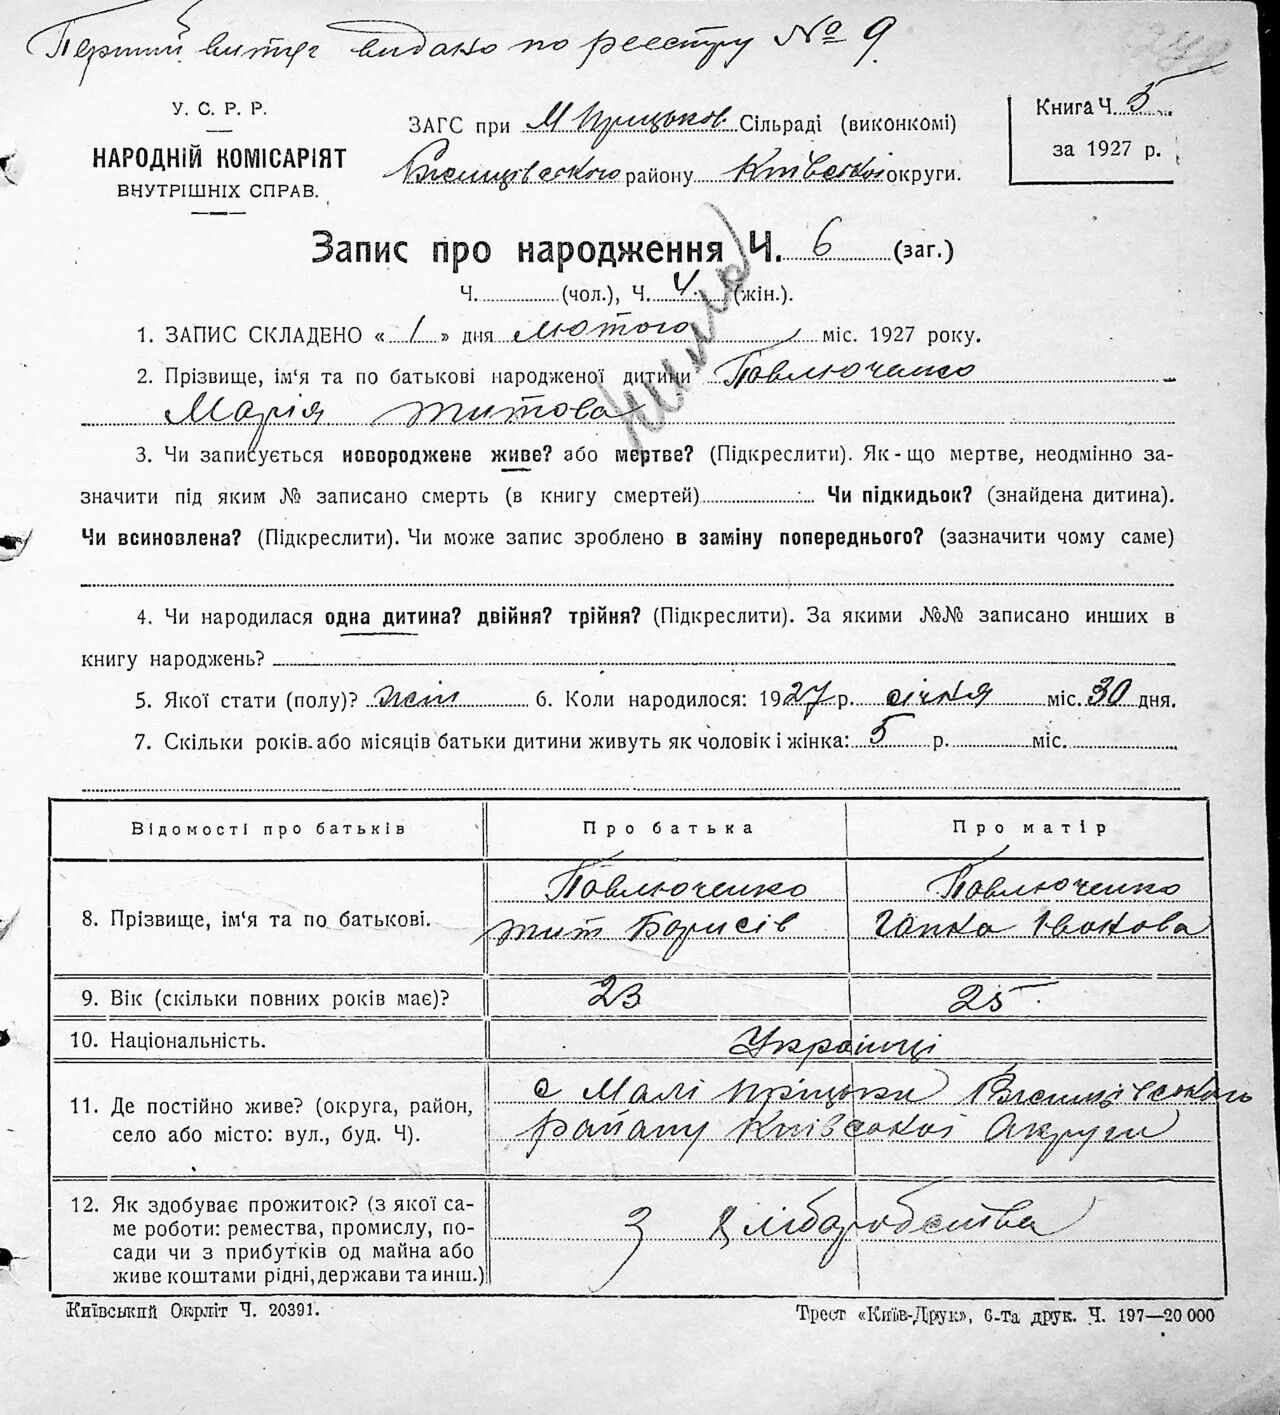 Перший витяг видано по реестру № 9
У. С. Р. Р.
НАРОДНІЙ КОМІСАРІЯТ
ВНУТРІШНІХ СПРАВ.
ЗАГС при М Прицьков. Сільраді (виконкомі)
району Київської округи.
Книга Ч. 5
за 1927 р.
Запис про народження Ч. 6 (заг.)
Ч. (чол.), Ч. 4. (жін.).
1. ЗАПИС СКЛАДЕНО « 1 » дня лютого міс. 1927 року.
2. Прізвище, ім‘я та по батькові народженої дитини Павлюченко
Марія Титова
3. Чи записується новороджене живе? або мертве? (Підкреслити). Як-що мертве, неодмінно за-
значити під яким № записано смерть (в книгу смертей) Чи підкидьок? (знайдена дитина).
Чи всиновлена? (Підкреслити). Чи може запис зроблено в заміну попереднього? (зазначити чому саме)
4. Чи народилася одна дитина? двійня? трійня? (Підкреслити). За якими №№ записано инших в
книгу народжень?
5. Якої стати (полу)? жін 6. Коли народилося: 1927 р. січня міс. 30 дня.
7. Скільки років або місяців батьки дитини живуть як чоловік і жінка: 5 р. міс.
Відомості про батьків Про батька Про матір
8. Прізвище, ім‘я та по батькові.
Павлюченко Павлюченко
Тит Борисів Гапка Іванова
9. Вік (скільки повних років має)? 23 25
10. Національність. Українці
11. Де постійно живе? (округа, район,
село або місто: вул., буд. Ч).
с Малі Пріцьки
району Київської Округи
12. Як здобуває прожиток? (з якої са-
ме роботи: ремества, промислу, по-
сади чи з прибутків од майна або
живе коштами рідні, держави та инш.)
З Хліборобства
Київський Окрліт Ч. 20391.
Трест «Київ-Друк», 6-та друк. Ч. 197—20 000